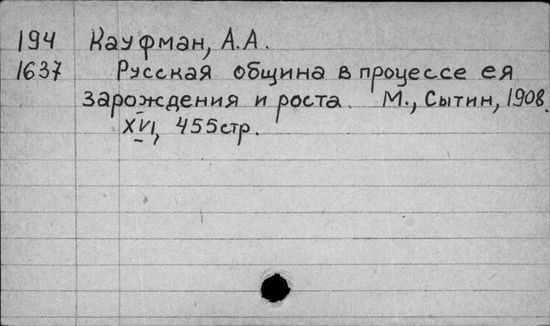 194 Кауфман, А.А.
1637 Русская община в процессе ея
зарождения и роста. М., Сытин, 1908.
XVI, 455стр.